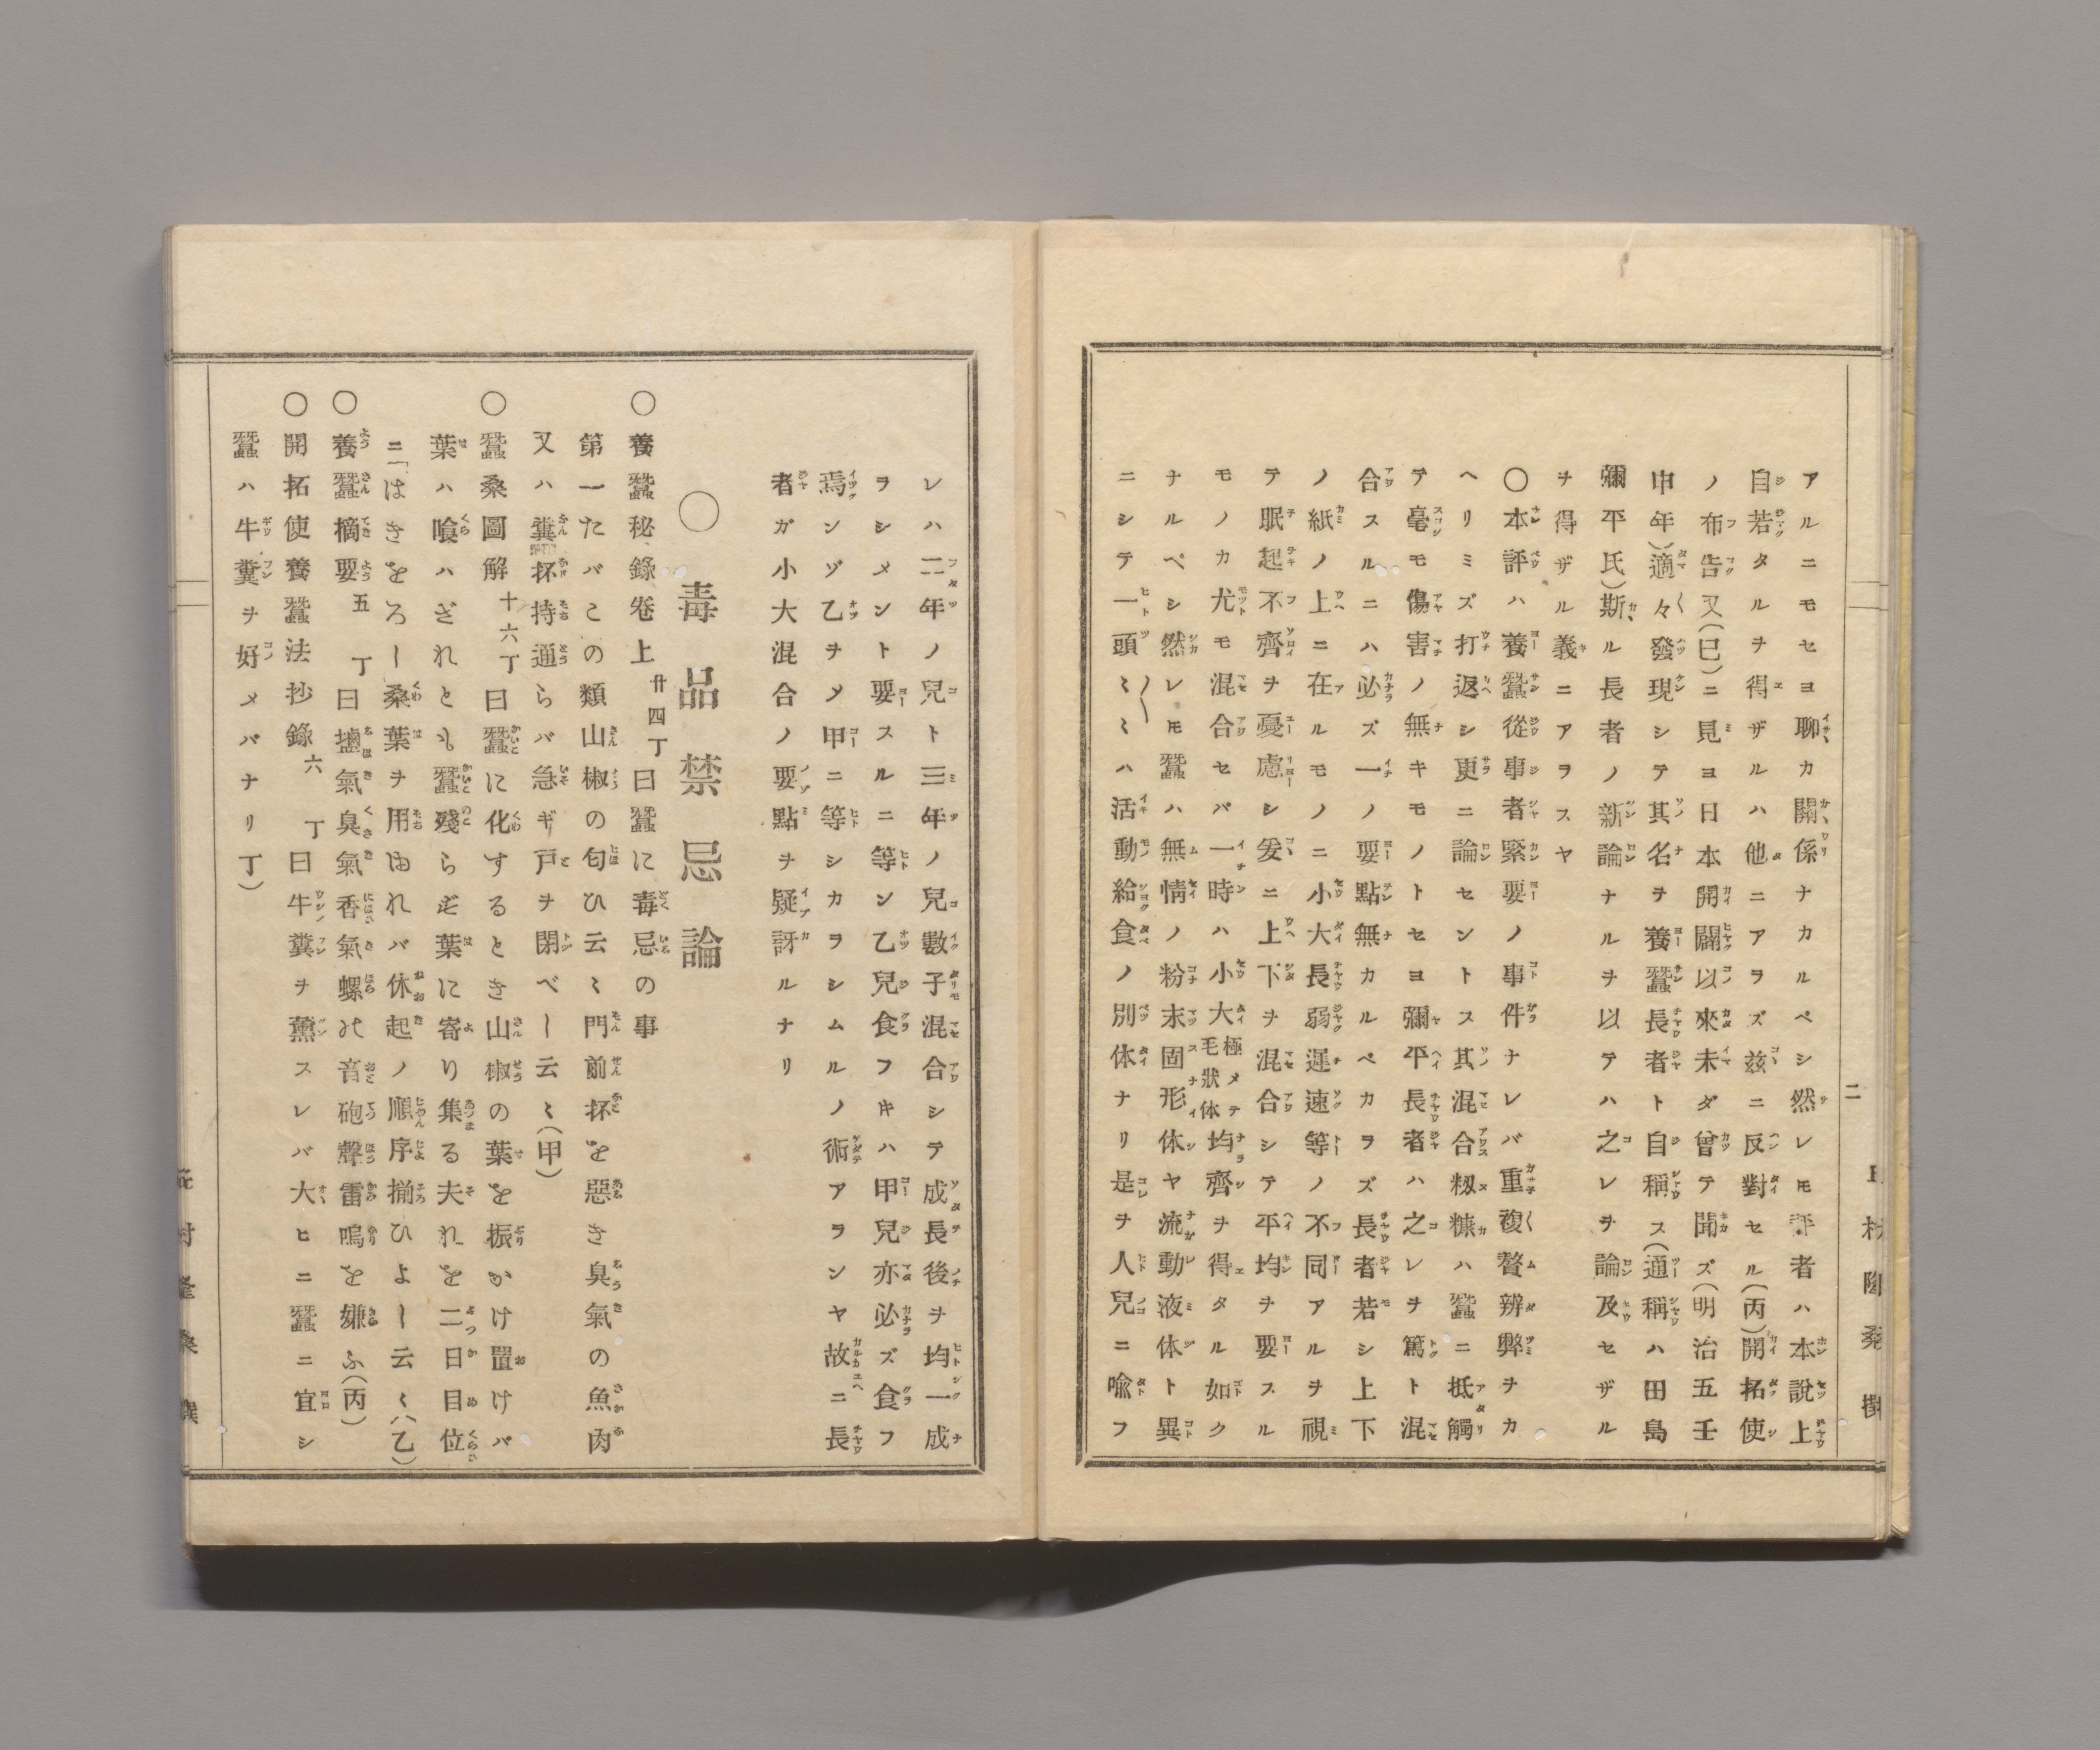 二
アルニモセヨ聊カ關係ナカルベシ然レモ評者ハ本說上
自若タルヲ得ザルハ他ニアヲズ茲ニ反對セル(丙)開拓使
ノ布告又(已)ニ見ヨ日本開闢以來未ダ曾テ聞ズ(明治五壬
申年)適々發現シテ其名ヲ養蠶長者ト自稱ス(通稱ハ田島
彌平氏)斯ル長者ノ新論ナルヲ以テハ之レヲ論及セザル
ヲ得ザル義ニアヲスヤ
〇本評ハ養蠶從事者緊要ノ事件ナレバ重複贅辨弊ヲカ
ヘリミズ打返シ更ニ論セントス其混合籾糠ハ蠶ニ抵觸
テ毫モ傷害ノ無キモノトセヨ彌平長者ハ之レヲ篤ト混
合スルニハ必ズ一ノ要點無カルベカヲズ長者若シ上下
ノ紙ノ上ニ在ルモノニ小大長弱遅速等ノ不同アルヲ視
テ眠起不齊ヲ憂慮シ爰ニ上下ヲ混合シテ平均ヲ要スル
モノカ尤モ混合セバ一時ハ小大極メテ毛狀体均齊ヲ得タル如ク
ナルベシ然レモ蠶ハ無情ノ粉末固形体ヤ流動液体ト異
ニシテ一頭〱〻ハ活動給食ノ別体ナリ是ヲ人兒ニ喩フ
レハ二年ノ兒ト三年ノ兒數子混合シテ成長後ヲ均一成
ヲシメント要スルニ等ン乙兒食フキハ甲兒亦必ズ食フ
焉ンゾ乙ヲメ甲ニ等シカヲシムルノ術アヲンヤ故ニ長
者ガ小大混合ノ要點ヲ疑訝ルナリ
〇毒品禁忌論
〇養蠶秘錄卷上廿四丁曰蠶に毒忌の事
第一たバこの類山椒の匂ひ云〻門前抔を惡き臭氣の魚肉
又ハ糞抔持通らバ急ギ戸ヲ閉べー云〻(甲)
〇蠶桑圖解十六丁曰蠶に化するとき山椒の葉を振かけ置けバ
葉ハ喰ハざれとも蠶殘らず葉に寄り集る夫れを二日目位
ニ「はきをろー桑葉ヲ用ゆれバ休起ノ順序揃ひよー云〻(乙)
〇養蠶摘要五丁曰鹽氣臭氣香氣螺の音砲聲雷鳴を嫌ふ(丙)
〇開拓使養蠶法抄錄六丁曰牛糞ヲ薫スレバ大ヒニ蠶ニ宜シ
蠶ハ牛糞ヲ好メバナリ丁)